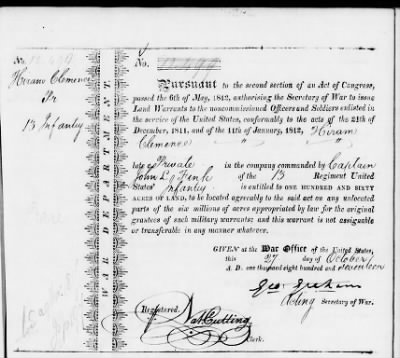 No. 12,499
Hiram Clemence
Pr
13 Infantry
WAR DEPARTMENT.
No. 12,499
Pursuant to the second section of an Act of Congress,
passed the 6th of May, 1812, authorising the Secretary of War to issue
Land Warrants to the noncommissioned Officers and Soldiers enlisted in
the service of the United States, conformably to the acts of the 24th of
December, 1811, and of the 11th of January, 1812, Hiram
Clemence " "
late a Private in the company commanded by Captain
John L. Fink of the 13 Regiment United
States' Infantry is entitled to ONE HUNDRED AND SIXTY
ACRES OF LAND, to be located agreeably to the said act on any unlocated
parts of the six millions of acres appropriated by law for the original
grantees of such military warrants; and this warrant is not assignable
or transferable in any manner whatever.
GIVEN at the War Office of the United States,
this 27 day of October
A. D. one thousand eight hundred and seventeen
Geo: Graham
Acting Secretary of War.
Registered.
Nat Cutting
Clerk.